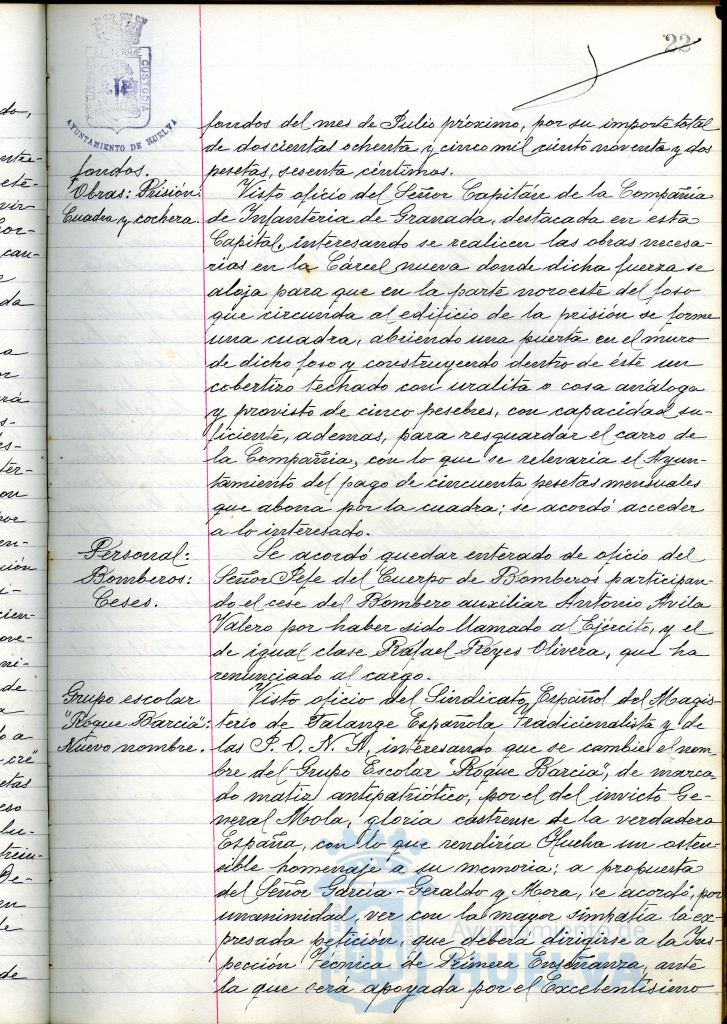 22
AYUNTAMIENTO DE HUELVA
CUSTODIA
fondos del mes de Julio próximo, por su importe total
de doscientas ochenta y cinco mil ciento noventa y dos
fondos.
pesetas, sesenta céntimos.
Obras: Prisión:
Cuadra y cochera.
Visto oficio del Señor Capitán de la Compañía
de Infantería de Granada, destacada en esta
Capital, interesando se realicen las obras necesa-
rias en la Cárcel nueva donde dicha fuerza se
aloja para que en la parte noroeste del foso
que circunda al edificio de la prisión se forme
una cuadra, abriendo una puerta en el muro
de dicho foso y construyendo dentro de éste un
cobertizo techado con uralita o cosa análoga
y provisto de cinco pesebres, con capacidad su-
ficiente, ademas, para resguardar el carro de
la Compañía, con lo que se relevaría el Ayun-
tamiento del pago de cincuenta pesetas mensuales
que abona por la cuadra; se acordó acceder
a lo interesado.
Personal:
Bomberos:
Ceses.
Se acordó quedar enterado de oficio del
Señor Jefe del Cuerpo de Bomberos participan-
do el cese del Bombero auxiliar Antonio Avila
Valero por haber sido llamado al Ejército, y el
de igual clase Rafael Reyes Olivera, que ha
renunciado al cargo.
Grupo escolar
"Roque Barcia":
Nuevo nombre.
Visto oficio del Sindicato Español del Magis-
terio de Falange Española Tradicionalista y de
las J. O. N. S, interesando que se cambie el nom-
bre del Grupo Escolar "Roque Barcia", de marca-
do matiz antipatriótico, por el del invicto Ge-
neral Mola, gloria castrense de la verdadera
España, con lo que rendiría Huelva un osten-
sible homenaje a su memoria; a propuesta
del Señor García-Geraldo y Mora, se acordó, por
unanimidad, ver con la mayor simpatía la ex-
presada petición, que deberá dirigirse a la Ins-
pección Técnica de Primera Enseñanza, ante
la que será apoyada por el Excelentísimo
Ayuntamiento de
HUELVA